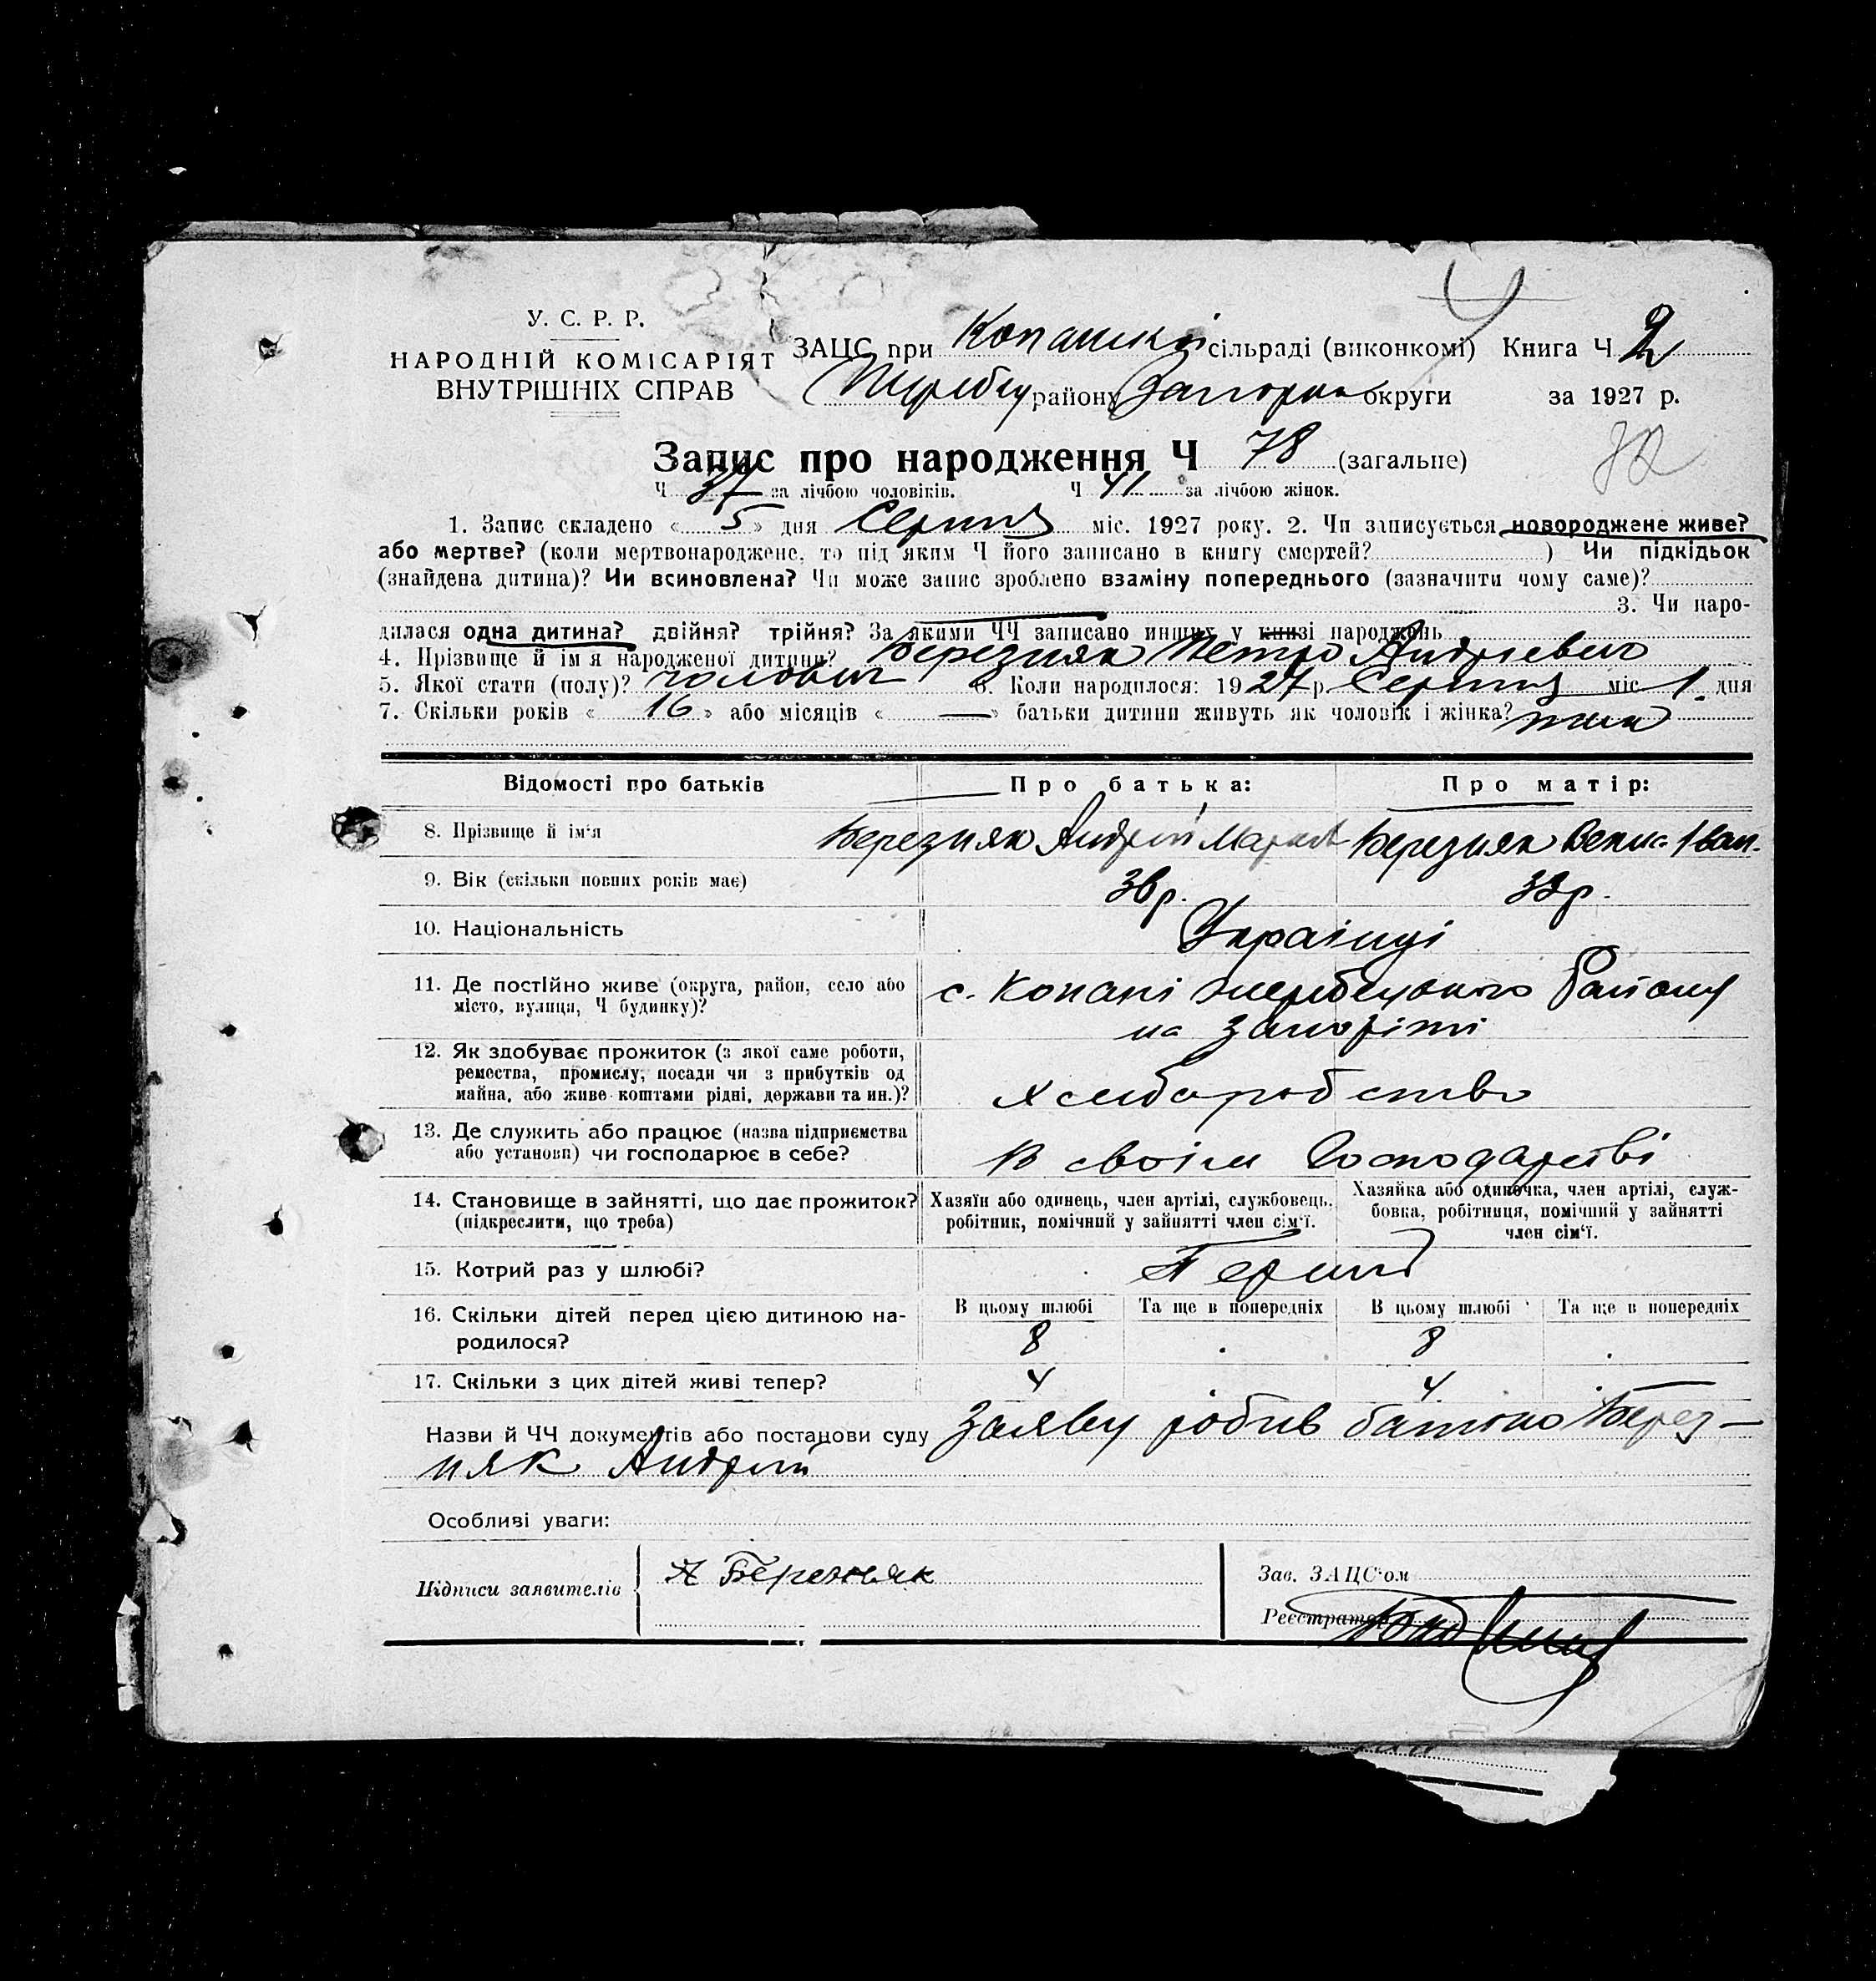 У. С. Р. Р.
НАРОДНІЙ КОМІСАРІЯТ
ВНУТРІШНІХ СПРАВ
ЗАЦС при Копанській сільраді (виконкомі) Книга Ч 2
району Запоріж округи за 1927 р.
Запис про народження Ч 78 (загальне)
Ч 37 за лічбою чоловіків. Ч 41 за лічбою жінок.
1. Запис складено « 5 » дня Серпня міс. 1927 року. 2. Чи записується новороджене живе?
або мертве? (коли мертвонароджене, то під яким Ч його записано в книгу смертей? ) Чи підкідьок
(знайдена дитина)? Чи всиновлена? Чи може запис зроблено взаміну попереднього (зазначити чому саме)?
3. Чи наро-
дилася одна дитина? двійня? трійня? За якими ЧЧ записано инших у книзі народжень
4. Прізвище й ім'я народженої дитини? Березняк Петро Андрієвич
5. Якої стати (полу)? чоловіч 6. Коли народилося: 1927 р. Серпня міс 1 дня
7. Скільки років « 16 » або місяців « — » батьки дитини живуть як чоловік і жінка?
Відомості про батьків Про батька: Про матір:
8. Прізвище й ім'я Березняк Андрій Марков Березняк Іван.
9. Вік (скільки повних років має) 36 р.
10. Національність Українці
11. Де постійно живе (округа, район, село або
місто, вулиця, Ч будинку)? с. Копані Жеребецького Району
на Запоріжі
12. Як здобуває прожиток (з якої саме роботи,
ремества, промислу, посади чи з прибутків од
майна, або живе коштами рідні, держави та ин.)? Хліборобство
13. Де служить або працює (назва підприємства
або установи) чи господарює в себе? В своїм Господарстві
14. Становище в зайнятті, що дає прожиток?
(підкреслити, що треба)
Хазяїн або одинець, член артілі, службовець,
робітник, помічний у зайнятті член сім'ї.
Хазяйка або одиночка, член артілі, служ-
бовка, робітниця, помічний у зайнятті
член сім'ї.
15. Котрий раз у шлюбі?
16. Скільки дітей перед цією дитиною на-
родилося?
В цьому шлюбі Та ще в попередніх В цьому шлюбі Та ще в попередніх
8 8
17. Скільки з цих дітей живі тепер? 4 4
Назви й ЧЧ документів або постанови суду Заяву робив батько Берез-
няк Андрій
Особливі уваги:
Підписи заявителів А Березняк
Зав. ЗАЦС'ом
Реєстратор